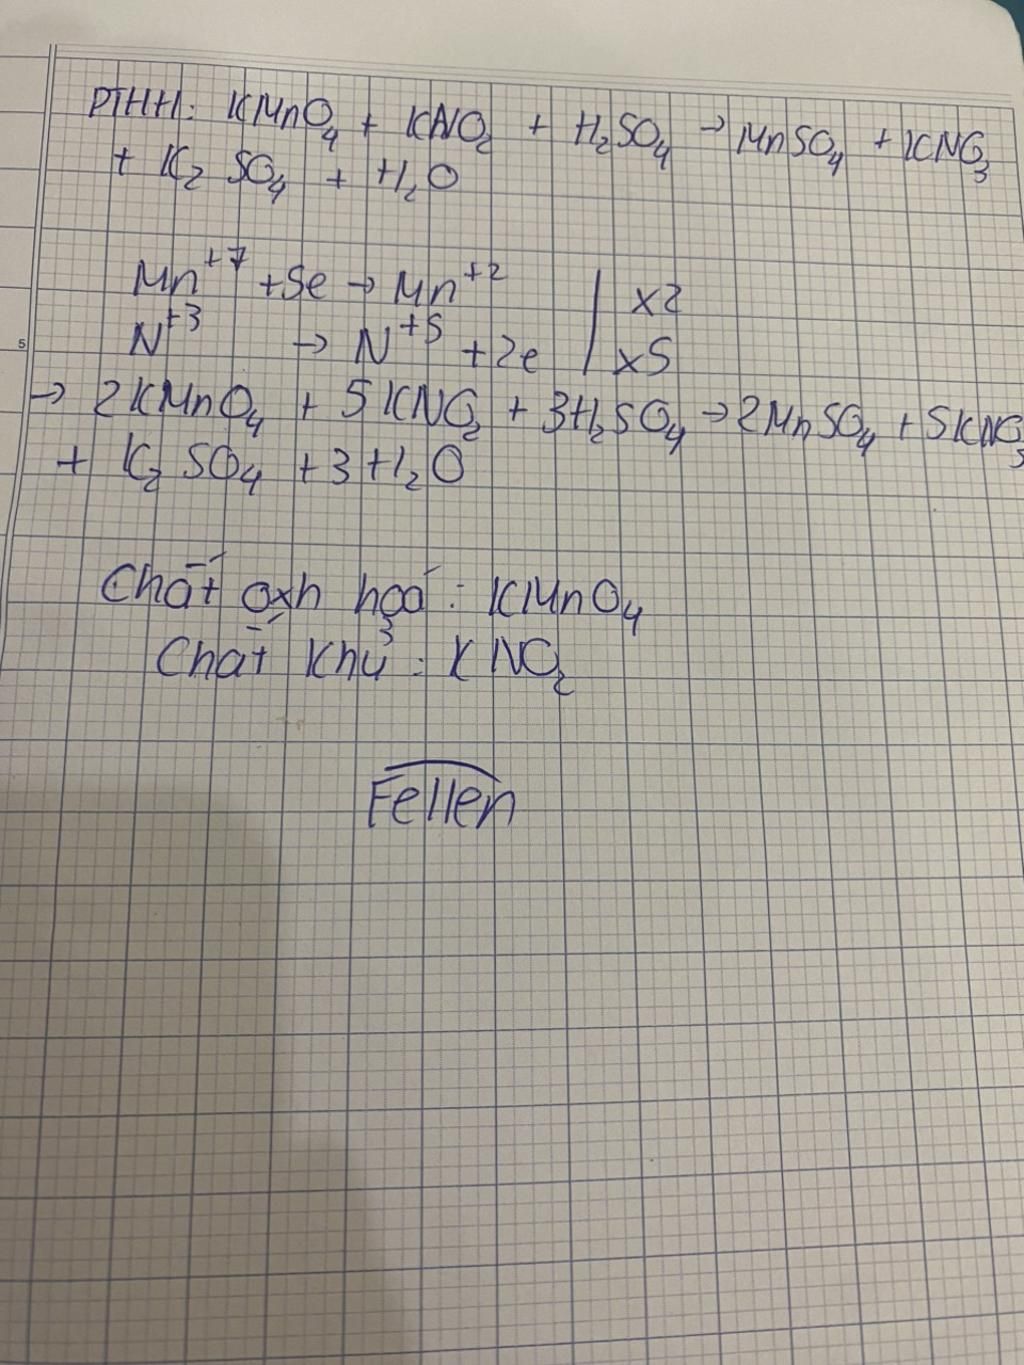 PTHH: KMnO₄ + KNO₂ + H₂SO₄ → MnSO₄ + KNO₃
+ K₂SO₄ + H₂O
Mn⁺⁷ + 5e → Mn⁺² | x2
5
N⁺³ → N⁺⁵ + 2e | x5
→ 2KMnO₄ + 5KNO₂ + 3H₂SO₄ → 2MnSO₄ + 5KNO₃
+ K₂SO₄ + 3H₂O
Chất oxh hoá: KMnO₄
Chất khử: KNO₂
Fellen